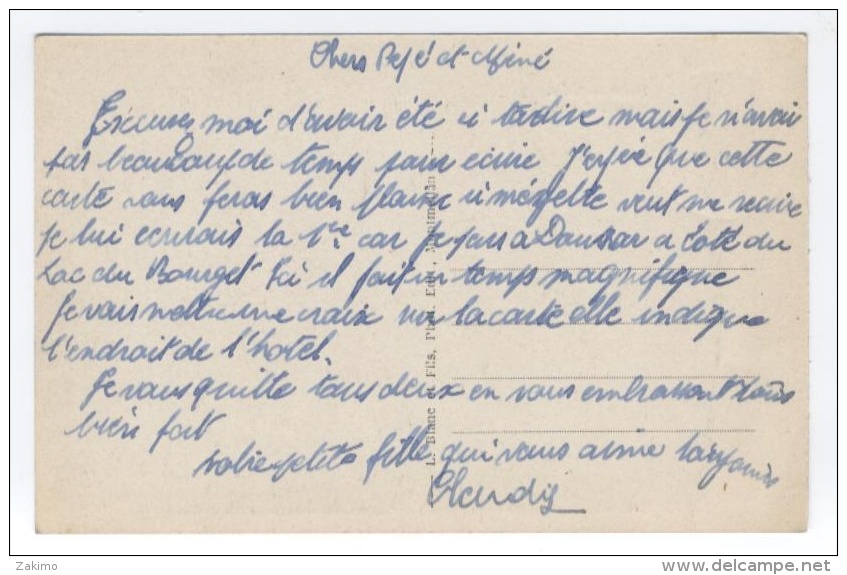 Chers Pépé et Mémé
Excusez moi d'avoir été si tardive mais je n'avais
pas beaucoup de temps pour écrire J'espère que cette
carte vous feras bien plaisir si mézelte veut me
je lui ecrirais la 1re car je pars a a coté du
Lac du Bourget Ici il fait un temps magnifique
Je vais mettre une croix sur la carte elle indique
l'endroit de l'hotel.
Je vous quitte tous deux en vous embrassant tous
bien fort
votre petite fille qui vous aime toujours
Claudie
L. Blanc et Fils, Phot. Edit., Montmélian
Zakimo
www.delcampe.net